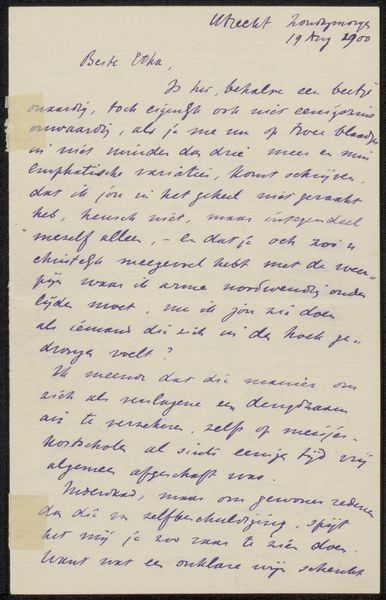 Utrecht Zondagmorgen
19 Aug 1900
Beste Edha,
Is het, behalve een beetje
onaardig, toch eigenlijk ook niet eenigszins
onwaardig, als je me nu op twee blaadjes
in niet minder dan drie meer en min
emphatische variaties, komt schrijven
dat ik jou in het geheel niet geraakt
heb, heusch niet, maar integendeel
meself alleen, – en dat je ook zoo'n
christelijk meegevoel hebt met de weer-
pijn waar ik arme noodwendig onder
lijden moet, nu ik jou zie doen
als iemand die zich in den hoek ge-
drongen voelt?
Ik meende dat die manier om
zich als verslagene een
air te verschaffen, zelfs op meisjes-
kostscholen al sinds eenige tijd vrij
algemeen afgeschaft was.
Inderdaad, maar om gewonere redenen
dan die van zelfbeschuldiging, spijt
het mij je zoo raar te zien doen.
Want wat een onklare wijn schenkt